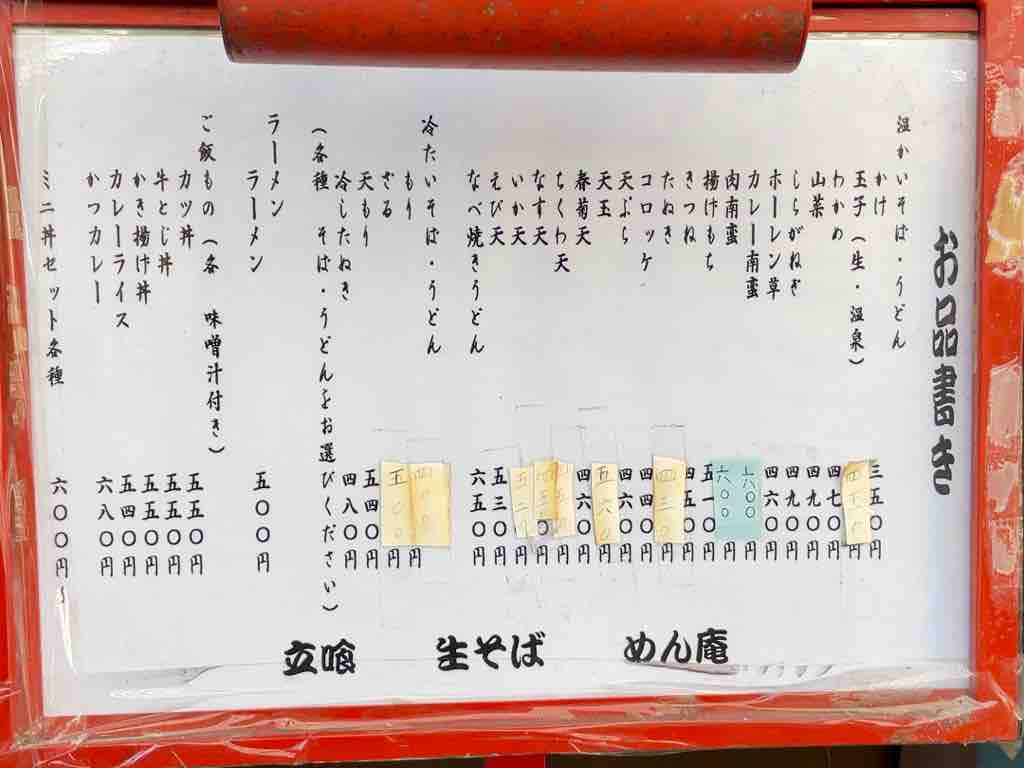 お品書き
温かいそば・うどん
かけ 三五〇円
玉子(生・温泉) 四五〇円
わかめ 四七〇円
山菜 四九〇円
しらがねぎ 四九〇円
ホーレン草 四六〇円
カレー南蛮 六〇〇円
肉南蛮 六〇〇円
揚げもち 五一〇円
きつね 四五〇円
たぬき 四三〇円
コロッケ 四六〇円
天ぷら 四六〇円
天玉 五六〇円
春菊天 四六〇円
ちくわ天 円
なす天 円
いか天 五二〇円
えび天 五三〇円
なべ焼きうどん 六五〇円
冷たいそば・うどん
もり 四〇〇円
ざる 五〇〇円
天もり 五四〇円
冷したぬき 四八〇円
(各種 そば・うどんをお選びください)
ラーメン
ラーメン 五〇〇円
ご飯もの(各 味噌汁付き)
カツ丼 五五〇円
牛とじ丼 五五〇円
かき揚げ丼 五五〇円
カレーライス 五四〇円
かつカレー 六八〇円
ミニ丼セット各種 六〇〇円〜
立喰 生そば めん庵